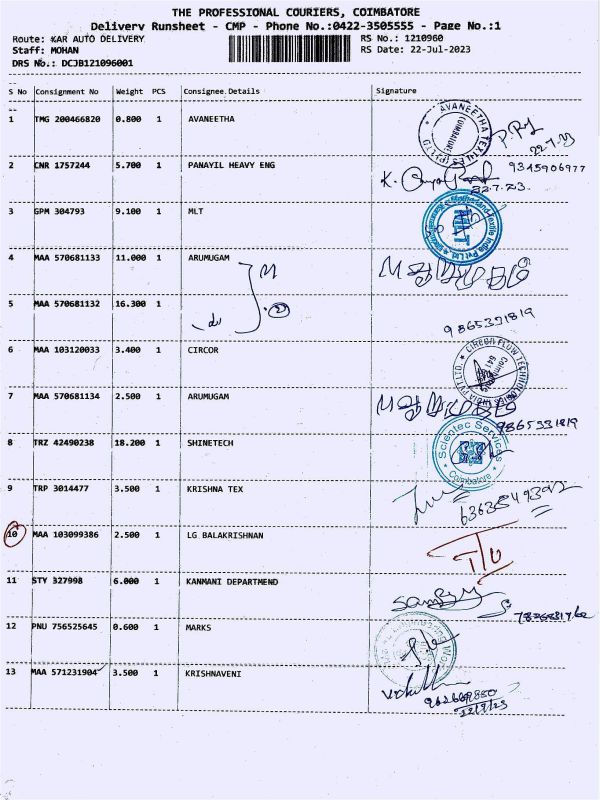 THE PROFESSIONAL COURIERS, COIMBATORE
Delivery Runsheet - CMP - Phone No.:0422-3505555 - Page No.:1
Route: KAR AUTO DELIVERY
RS No.: 1210960
Staff: MOHAN
RS Date: 22-Jul-2023
DRS No.: DCJB121096001
S No Consignment No Weight PCS Consignee Details Signature
1 TMG 200466820 0.800 1 AVANEETHA
22-7-23
2 CNR 1757244 5.700 1 PANAYIL HEAVY ENG
9345906977
22.7.23
3 GPM 304793 9.100 1 MLT
4 MAA 570681133 11.000 1 ARUMUGAM
5 MAA 570681132 16.300 1
9865331819
6 MAA 103120033 3.400 1 CIRCOR
CIRCOR FLOW TECHNOLOGIES INDIA PVT LTD.
7 MAA 570681134 2.500 1 ARUMUGAM
9865331819
8 TRZ 42490238 18.200 1 SHINETECH
Scientec Services
Coimbatore
9 TRP 3014477 3.500 1 KRISHNA TEX
10 MAA 103099386 2.500 1 LG BALAKRISHNAN
11 STY 327998 6.000 1 KANMANI DEPARTMEND
12 PNU 756525645 0.600 1 MARKS
13 MAA 571231904 3.500 1 KRISHNAVENI